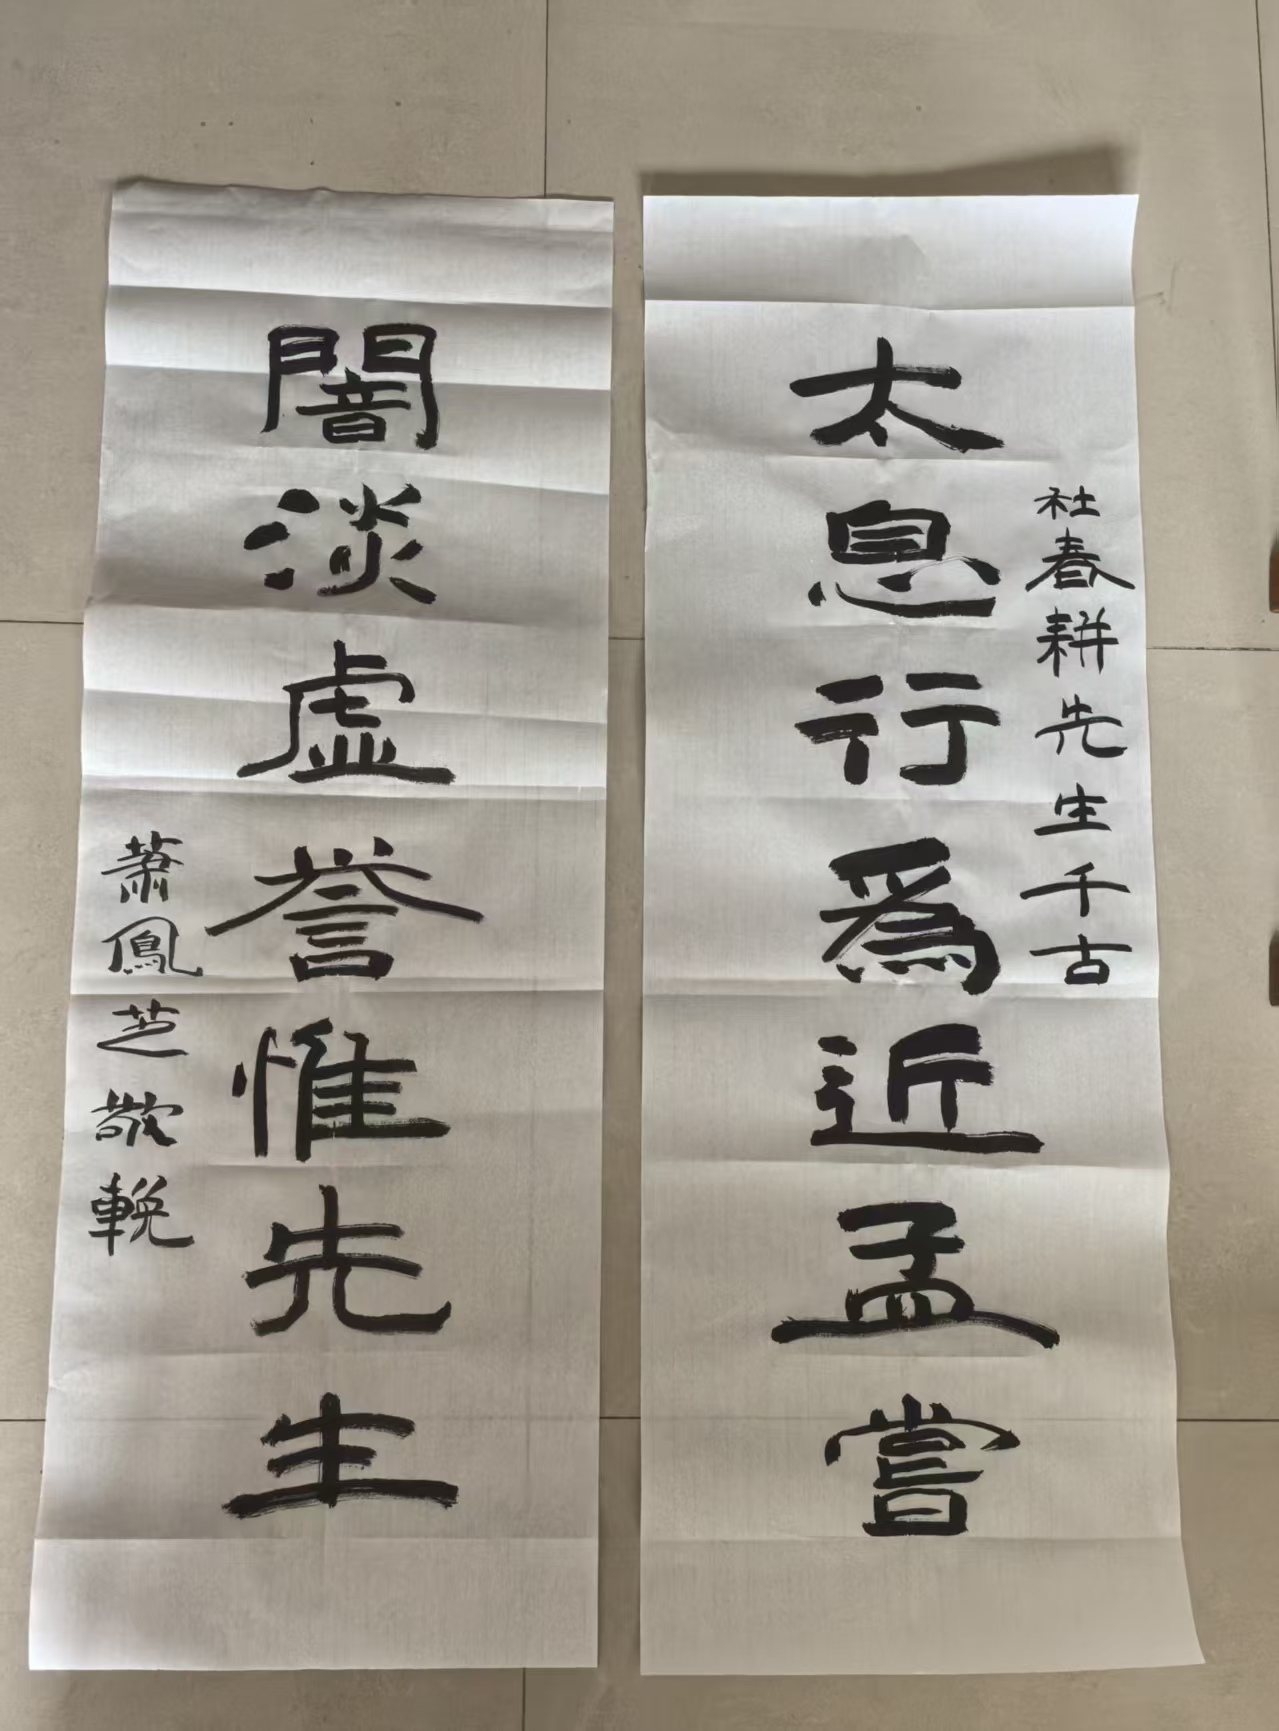 社春耕先生千古
太息行為近孟嘗
闇淡虛誉惟先生
蕭鳳芝敬輓